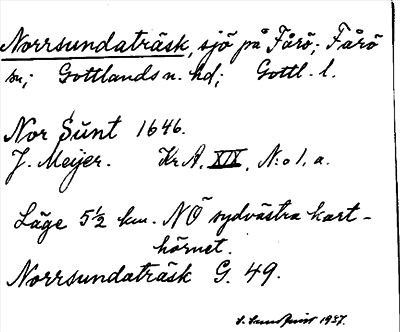 Norrsundaträsk, sjö på Fårö; Fårö
sn; Gottlands n. hd; Gottl. l.
Nor Sŭnt 1646.
J. Meijer. Kr A. XIX, N:o 1, a.
Läge 5½ km. NÖ sydvästra kart-
hörnet.
Norrsundaträsk G. 49.
S. Sundquist 1937.